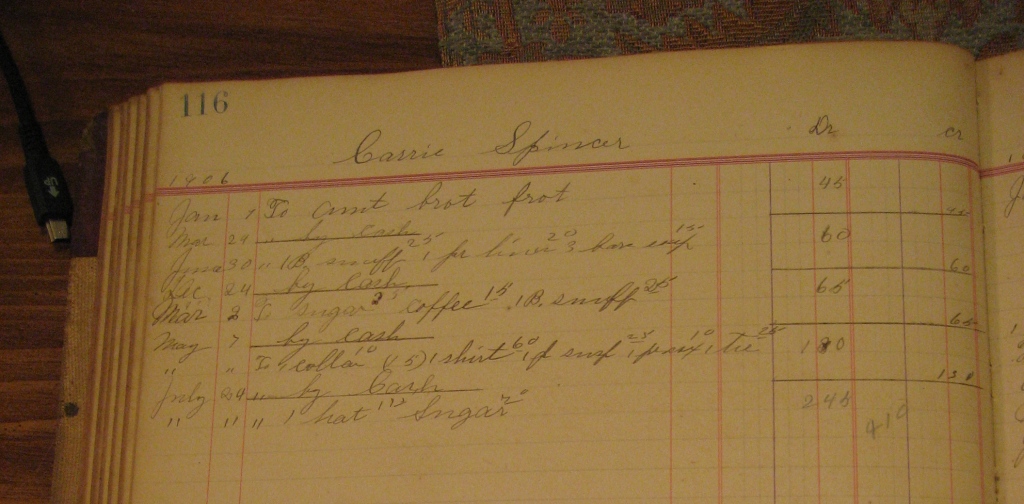 116
Carrie Spincer Dr cr
1906
Jan 7 To amt brot frot 45
Mar 29 " by cash
June 30 " 1 B. snuff 25 1 pr 20 3 15 60
24 by cash 60
Mar 2 To sugar 25 coffee 15 1 B. snuff 25 65
May 7 by cash 65
" " To 1 collar 10 (15) 1 shirt 60 25 10 1 tie 25
July 29 " by Cash 130
" " " 1 hat Sugar 245
410